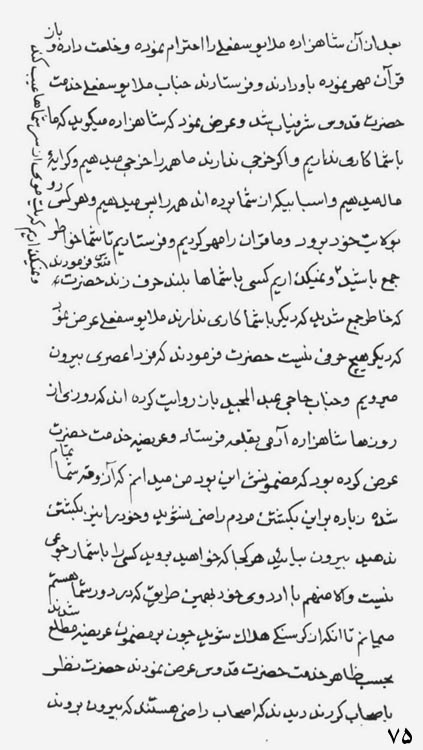 بعد از آن شاهزاده ملا یوسفعلی را احترام نموده و خلعت داده و باز
قرآن مهر نموده باو دادند و فرستادند جناب ملا یوسفعلی خدمت
حضرت قدوس شرفیاب شد و عرض نمود که شاهزاده میکوید که ما
با شما کاری نداریم و اکر خرجی ندارند ما همه را خرجی میدهیم و کرایهٔ
مال میدهیم و اسبابیکه از شما برده اند همه را پس میدهیم و هر کس رو
بولایت خود برود و ما قرآن را مهر کردیم و فرستادیم تا شما خواطر
جمع باشید و نمیکذاریم کسی با شماها بلند حرف زند حضرت قدوس فرمودند
و نمیکذاریم که یک موی از سر شماها عیب کند
که خاطر جمع شدید که دیکر با شما کاری ندارند ملا یوسفعلی عرض نمود
که دیکر هیچ حرفی نیست حضرت فرمودند که فردا عصری بیرون
میرویم و جناب حاجی عبد المجید بان روایت کرده اند که روزی از
روزها شاهزاده آدمی بقلعه فرستاد و عریضه خدمت حضرت
عرض کرده بود که مضمونش این بود من میدانم که آذوقه شما تمام
شده زیاده بر این بکشتن مردم راضی نشوید و خود را نیز بکشتن
ندهید بیرون بیائید هر کجا که خواهید بروید کسی را با شما رجوعی
نیست و الا منهم با اردوی خود بهمین طریق که در دور شما هستم
میمانم تا آنکه از کرسنکی هلاک شوید چون بر مضمون عریضه مطلع شدند
بحسب ظاهر خدمت حضرت قدوس عرض نمودند حضرت نظر
باصحاب کردند دیدند که اصحاب راضی هستند که بیرون بروند
۷۵